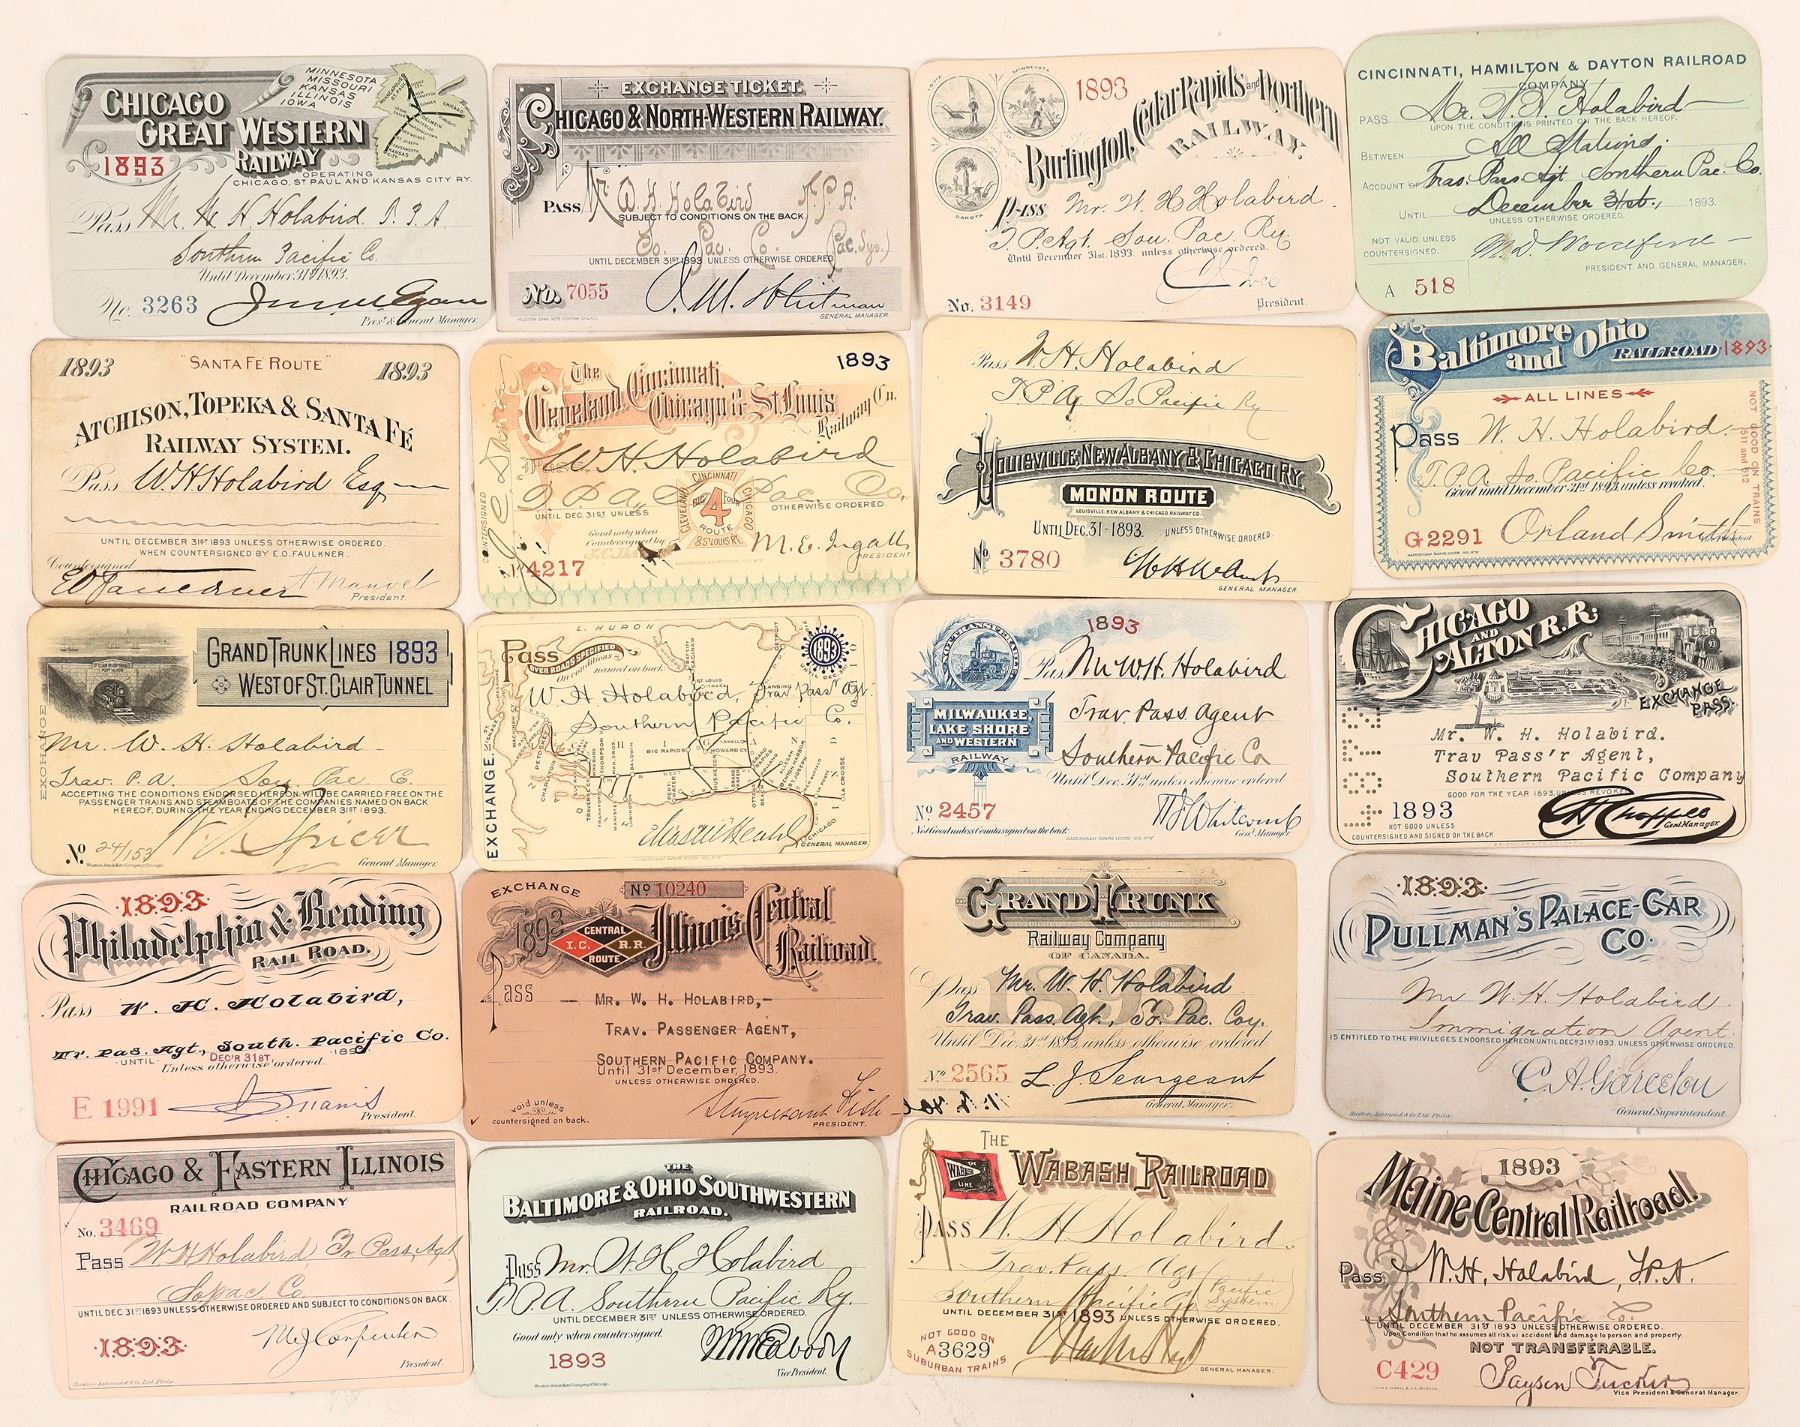 CHICAGO
GREAT WESTERN
RAILWAY
MINNESOTA
MISSOURI
KANSAS
ILLINOIS
IOWA
1893
OPERATING
CHICAGO, ST PAUL AND KANSAS CITY RY.
Pass Mr. W H Holabird. T. P. A.
Southern Pacific Co.
Until December 31st 1893.
No. 3263
Prest & General Manager.
EXCHANGE TICKET.
CHICAGO & NORTH-WESTERN RAILWAY.
PASS Mr. W. H. Holabird T.P.A.
SUBJECT TO CONDITIONS ON THE BACK
So. Pac. Co. (Pac. Sys.)
UNTIL DECEMBER 31ST 1893 UNLESS OTHERWISE ORDERED
No. 7055
J. M. Whitman
GENERAL MANAGER.
IOWA
MINNESOTA
DAKOTA
1893
Burlington, Cedar Rapids and Northern
RAILWAY.
Pass Mr. W. H Holabird.
T. P. Agt. Sou. Pac. Ry.
Until December 31st. 1893. unless otherwise ordered.
C J Ives
No. 3149
President.
CINCINNATI, HAMILTON & DAYTON RAILROAD
COMPANY
PASS Mr. W. H. Holabird
UPON THE CONDITIONS PRINTED ON THE BACK HEREOF.
BETWEEN All Stations.
ACCOUNT OF Trav. Pass Agt Southern Pac. Co.
UNTIL December 31st, 1893.
UNLESS OTHERWISE ORDERED.
NOT VALID UNLESS
COUNTERSIGNED.
M. D. Woodford
PRESIDENT AND GENERAL MANAGER.
A 518
1893 "SANTA FE ROUTE" 1893
ATCHISON, TOPEKA & SANTA FÉ
RAILWAY SYSTEM.
Pass W. H Holabird Esq
UNTIL DECEMBER 31ST 1893 UNLESS OTHERWISE ORDERED.
WHEN COUNTERSIGNED BY E.O. FAULKNER.
Countersigned
E O Faulkner A. Manvel
President.
The
Cleveland, Cincinnati,
Chicago & St. Louis
Railway Co.
1893
W. H. Holabird
T. P. A., So Pac. Co.
UNTIL DEC. 31ST UNLESS OTHERWISE ORDERED.
Good only when
Countersigned by
CLEVELAND CINCINNATI CHICAGO & ST. LOUIS RY.
BIG FOUR
4
ROUTE
COUNTERSIGNED
M. E. Ingalls
PRESIDENT
4217
Pass W. H. Holabird
T. P. Ag. So Pacific Ry
LOUISVILLE, NEW ALBANY & CHICAGO RY.
MONON ROUTE
LOUISVILLE, NEW ALBANY & CHICAGO RAILWAY CO.
UNTIL DEC. 31-1893. UNLESS OTHERWISE ORDERED.
No 3780
GENERAL MANAGER.
Baltimore
and Ohio
RAILROAD 1893
ALL LINES
Pass W. H. Holabird.
T. P. A. So. Pacific Co.
Good until December 31st 1893, unless revoked.
NOT GOOD ON TRAINS
511 and 512
G 2291
Orland Smith
President.
GRAND TRUNK LINES 1893
WEST OF ST. CLAIR TUNNEL
EXCHANGE
Mr. W. H. Holabird
Trav. P. A. Sou. Pac. C.
ACCEPTING THE CONDITIONS ENDORSED HEREON, WILL BE CARRIED FREE ON THE
PASSENGER TRAINS AND STEAMBOATS OF THE COMPANIES NAMED ON BACK
HEREOF, DURING THE YEAR ENDING DECEMBER 31ST 1893.
No 24153
W. J. Spicer
General Manager.
L. HURON
Pass OVER ROADS SPECIFIED
On conditions named on back
1893
W. H. Holabird, Trav. Pass Agt
Southern Pacific Co.
EXCHANGE.
CHICAGO
GENERAL MANAGER
1893
Pass Mr W. H. Holabird
MILWAUKEE,
LAKE SHORE
AND WESTERN
RAILWAY
Trav. Pass. Agent
Southern Pacific Co
Until Dec. 31st unless otherwise ordered
No 2457
Not Good unless Countersigned on the back.
Genl. Manager.
CHICAGO
AND
ALTON R.R.
EXCHANGE
PASS.
Mr. W. H. Holabird.
Trav Pass'r Agent,
Southern Pacific Company
GOOD FOR THE YEAR 1893, UNLESS REVOKED
1893
NOT GOOD UNLESS
COUNTERSIGNED AND SIGNED ON THE BACK
Genl Manager.
1893
Philadelphia & Reading
RAIL ROAD.
Pass W. H. Holabird,
Tr. Pas. Agt, South. Pacific Co.
UNTIL DEC'R 31ST, 189
Unless otherwise ordered.
E 1991
President.
EXCHANGE No 10240
1893
Illinois Central
Railroad.
CENTRAL
I.C. R.R.
ROUTE
Pass
MR. W. H. HOLABIRD,-
TRAV. PASSENGER AGENT,
SOUTHERN PACIFIC COMPANY.
Until 31st December, 1893.
UNLESS OTHERWISE ORDERED.
void unless
countersigned on back.
Stuyvesant Fish
PRESIDENT.
GRAND TRUNK
Railway Company
OF CANADA.
1893
Pass Mr. W. H. Holabird
Trav. Pass. Agt., So. Pac. Coy.
Until Dec. 31st 1893, unless otherwise ordered
No 2565
L. J. Seargeant
General Manager.
1893
PULLMAN'S PALACE-CAR
CO.
Mr W. H. Holabird.
Immigration Agent.
IS ENTITLED TO THE PRIVILEGES ENDORSED HEREON UNTIL DEC 31ST 1893, UNLESS OTHERWISE ORDERED.
C. A. Garcelon
General Superintendent.
CHICAGO & EASTERN ILLINOIS
RAILROAD COMPANY
No. 3469
Pass W H Holabird, Tr. Pass. Agt
So pac Co.
UNTIL DEC. 31 1893 UNLESS OTHERWISE ORDERED AND SUBJECT TO CONDITIONS ON BACK.
1893
M J Carpenter
President
THE
BALTIMORE & OHIO SOUTHWESTERN
RAILROAD.
Pass Mr. W. H Holabird
T. P. A. Southern Pacific Ry.
UNTIL DECEMBER 31ST UNLESS OTHERWISE ORDERED.
Good only when countersigned.
1893
W. W. Peabody
Vice President.
THE
WABASH RAILROAD
THE
WABASH
LINE
PASS W. H. Holabird
Trav. Pass. Agt
Southern Pacific Co (Pacific System)
UNTIL DECEMBER 31ST 1893 UNLESS OTHERWISE ORDERED.
NOT GOOD ON
A3629
SUBURBAN TRAINS
GENERAL MANAGER.
1893
Maine Central Railroad.
Pass W. H. Holabird, T.P.A.
Southern Pacific Co.
UNTIL DECEMBER 31ST 1893 UNLESS OTHERWISE ORDERED.
Upon Condition that he assumes all risk of accident and damage to person and property.
NOT TRANSFERABLE.
C429
Payson Tucker
Vice President & General Manager.